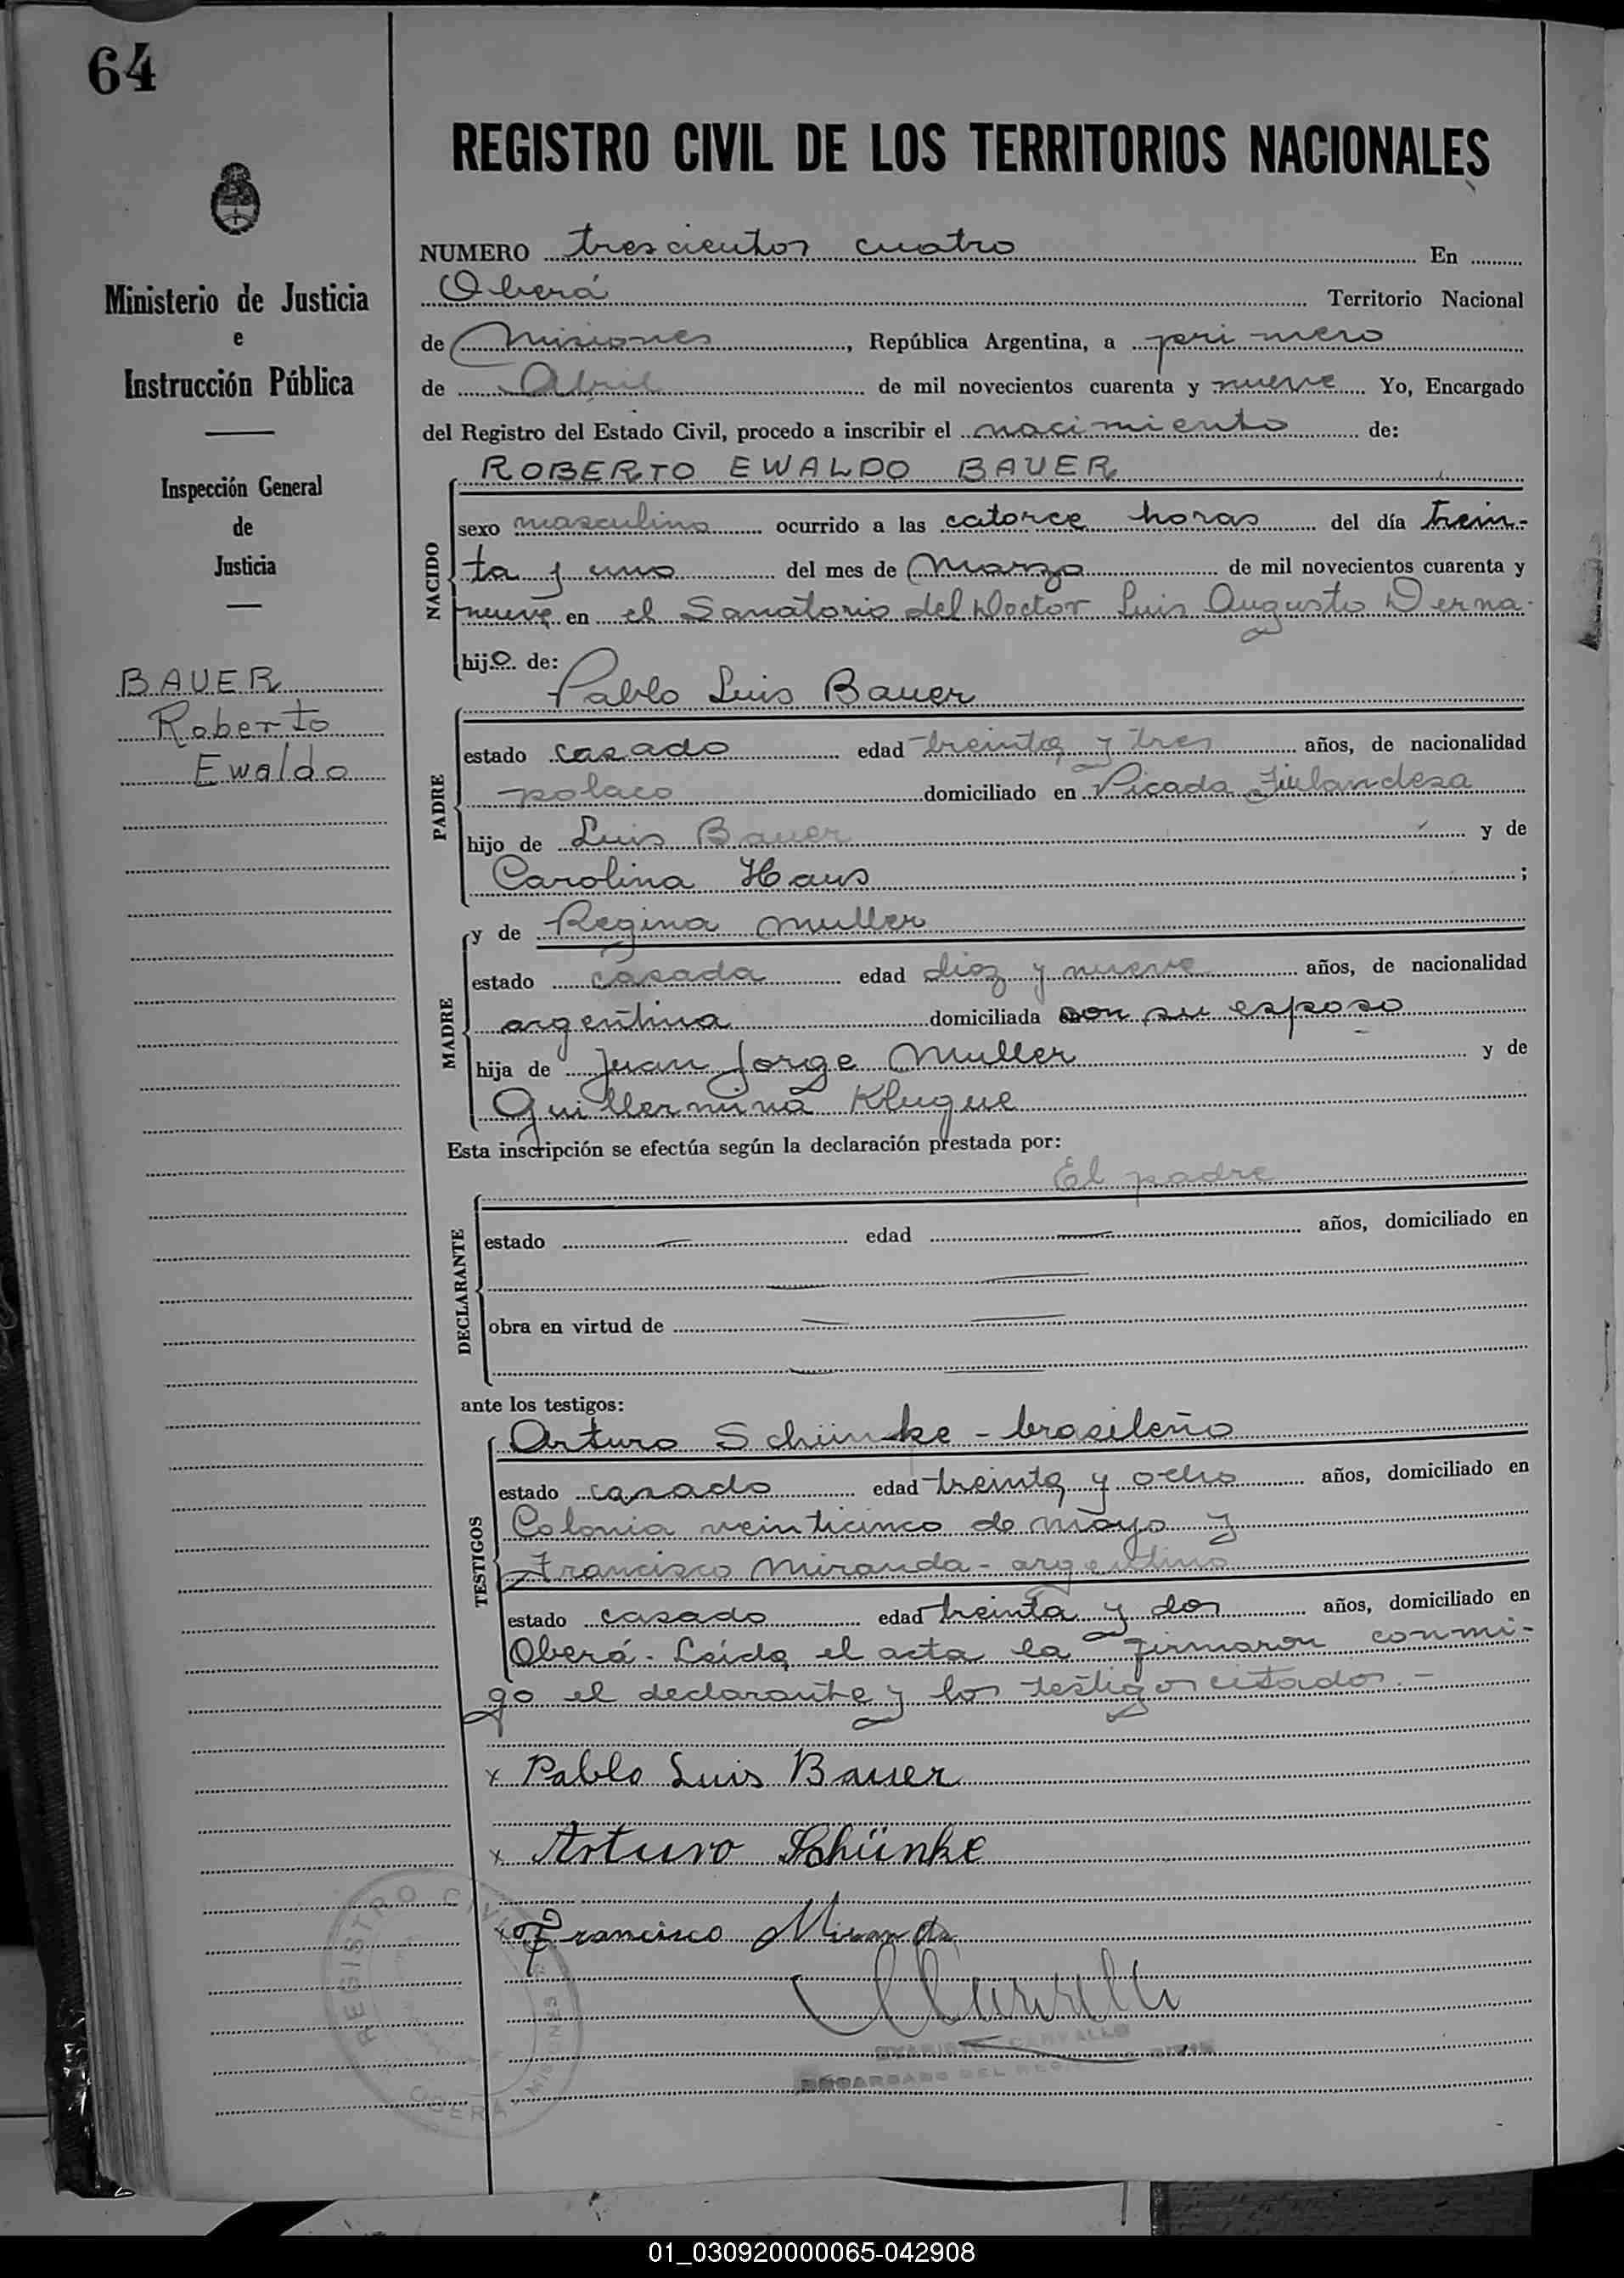 64
REGISTRO CIVIL DE LOS TERRITORIOS NACIONALES
Ministerio de Justicia
e
Instrucción Pública
Inspección General
de
Justicia
BAUER
Roberto
Ewaldo
NUMERO trescientos cuatro En
Oberá Territorio Nacional
de Misiones, República Argentina, a primero
de Abril de mil novecientos cuarenta y nueve Yo, Encargado
del Registro del Estado Civil, procedo a inscribir el nacimiento de:
ROBERTO EWALDO BAUER
NACIDO
sexo masculino ocurrido a las catorce horas del día trein-
ta y uno del mes de Marzo de mil novecientos cuarenta y
nueve en el Sanatorio del Doctor Luis Augusto Derna
hijo de:
Pablo Luis Bauer
PADRE
estado casado edad treinta y tres años, de nacionalidad
polaco domiciliado en Picada Finlandesa
hijo de Luis Bauer y de
Carolina Haus ;
y de Regina Muller
MADRE
estado casada edad diez y nueve años, de nacionalidad
argentina domiciliada con su esposo
hija de Juan Jorge Muller y de
Guillermina Klugue
Esta inscripción se efectúa según la declaración prestada por:
El padre
DECLARANTE
estado edad años, domiciliado en
obra en virtud de
ante los testigos:
Arturo Schünke - brasileño
TESTIGOS
estado casado edad treinta y ocho años, domiciliado en
Colonia veinticinco de mayo y
Francisco Miranda - argentino
estado casado edad treinta y dos años, domiciliado en
Oberá. Leída el acta la firmaron conmi-
go el declarante y los testigos citados.-
x Pablo Luis Bauer
x Arturo Schünke
x Francisco Miranda
REGISTRO CIVIL
OBERA MISIONES
CARVALLO
ENCARGADO DEL REGISTRO CIVIL
01_030920000065-042908